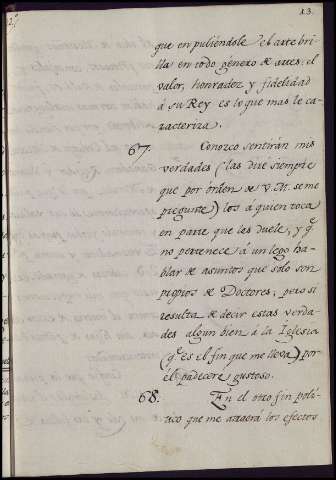 23.
que en puliéndole el arte bri-
lla en todo género de artes: el
valor, honradez y fidelidad
á su Rey es lo que mas le ca-
racteriza.
67. Conozco sentirán mis
verdades (las diré siempre
que por órden de V. M. se me
pregunte) los á quien toca
en parte que les duele, y q.e
no pertenece á un lego ha-
blar de asuntos que solo son
propios de Doctores; pero si
resulta de decir estas verda-
des algun bien á la Iglesia
(q.e es el fin que me lleva) por
el padeceré gustoso.
68. En el otro fin polí-
tico que me atraerá los efectos